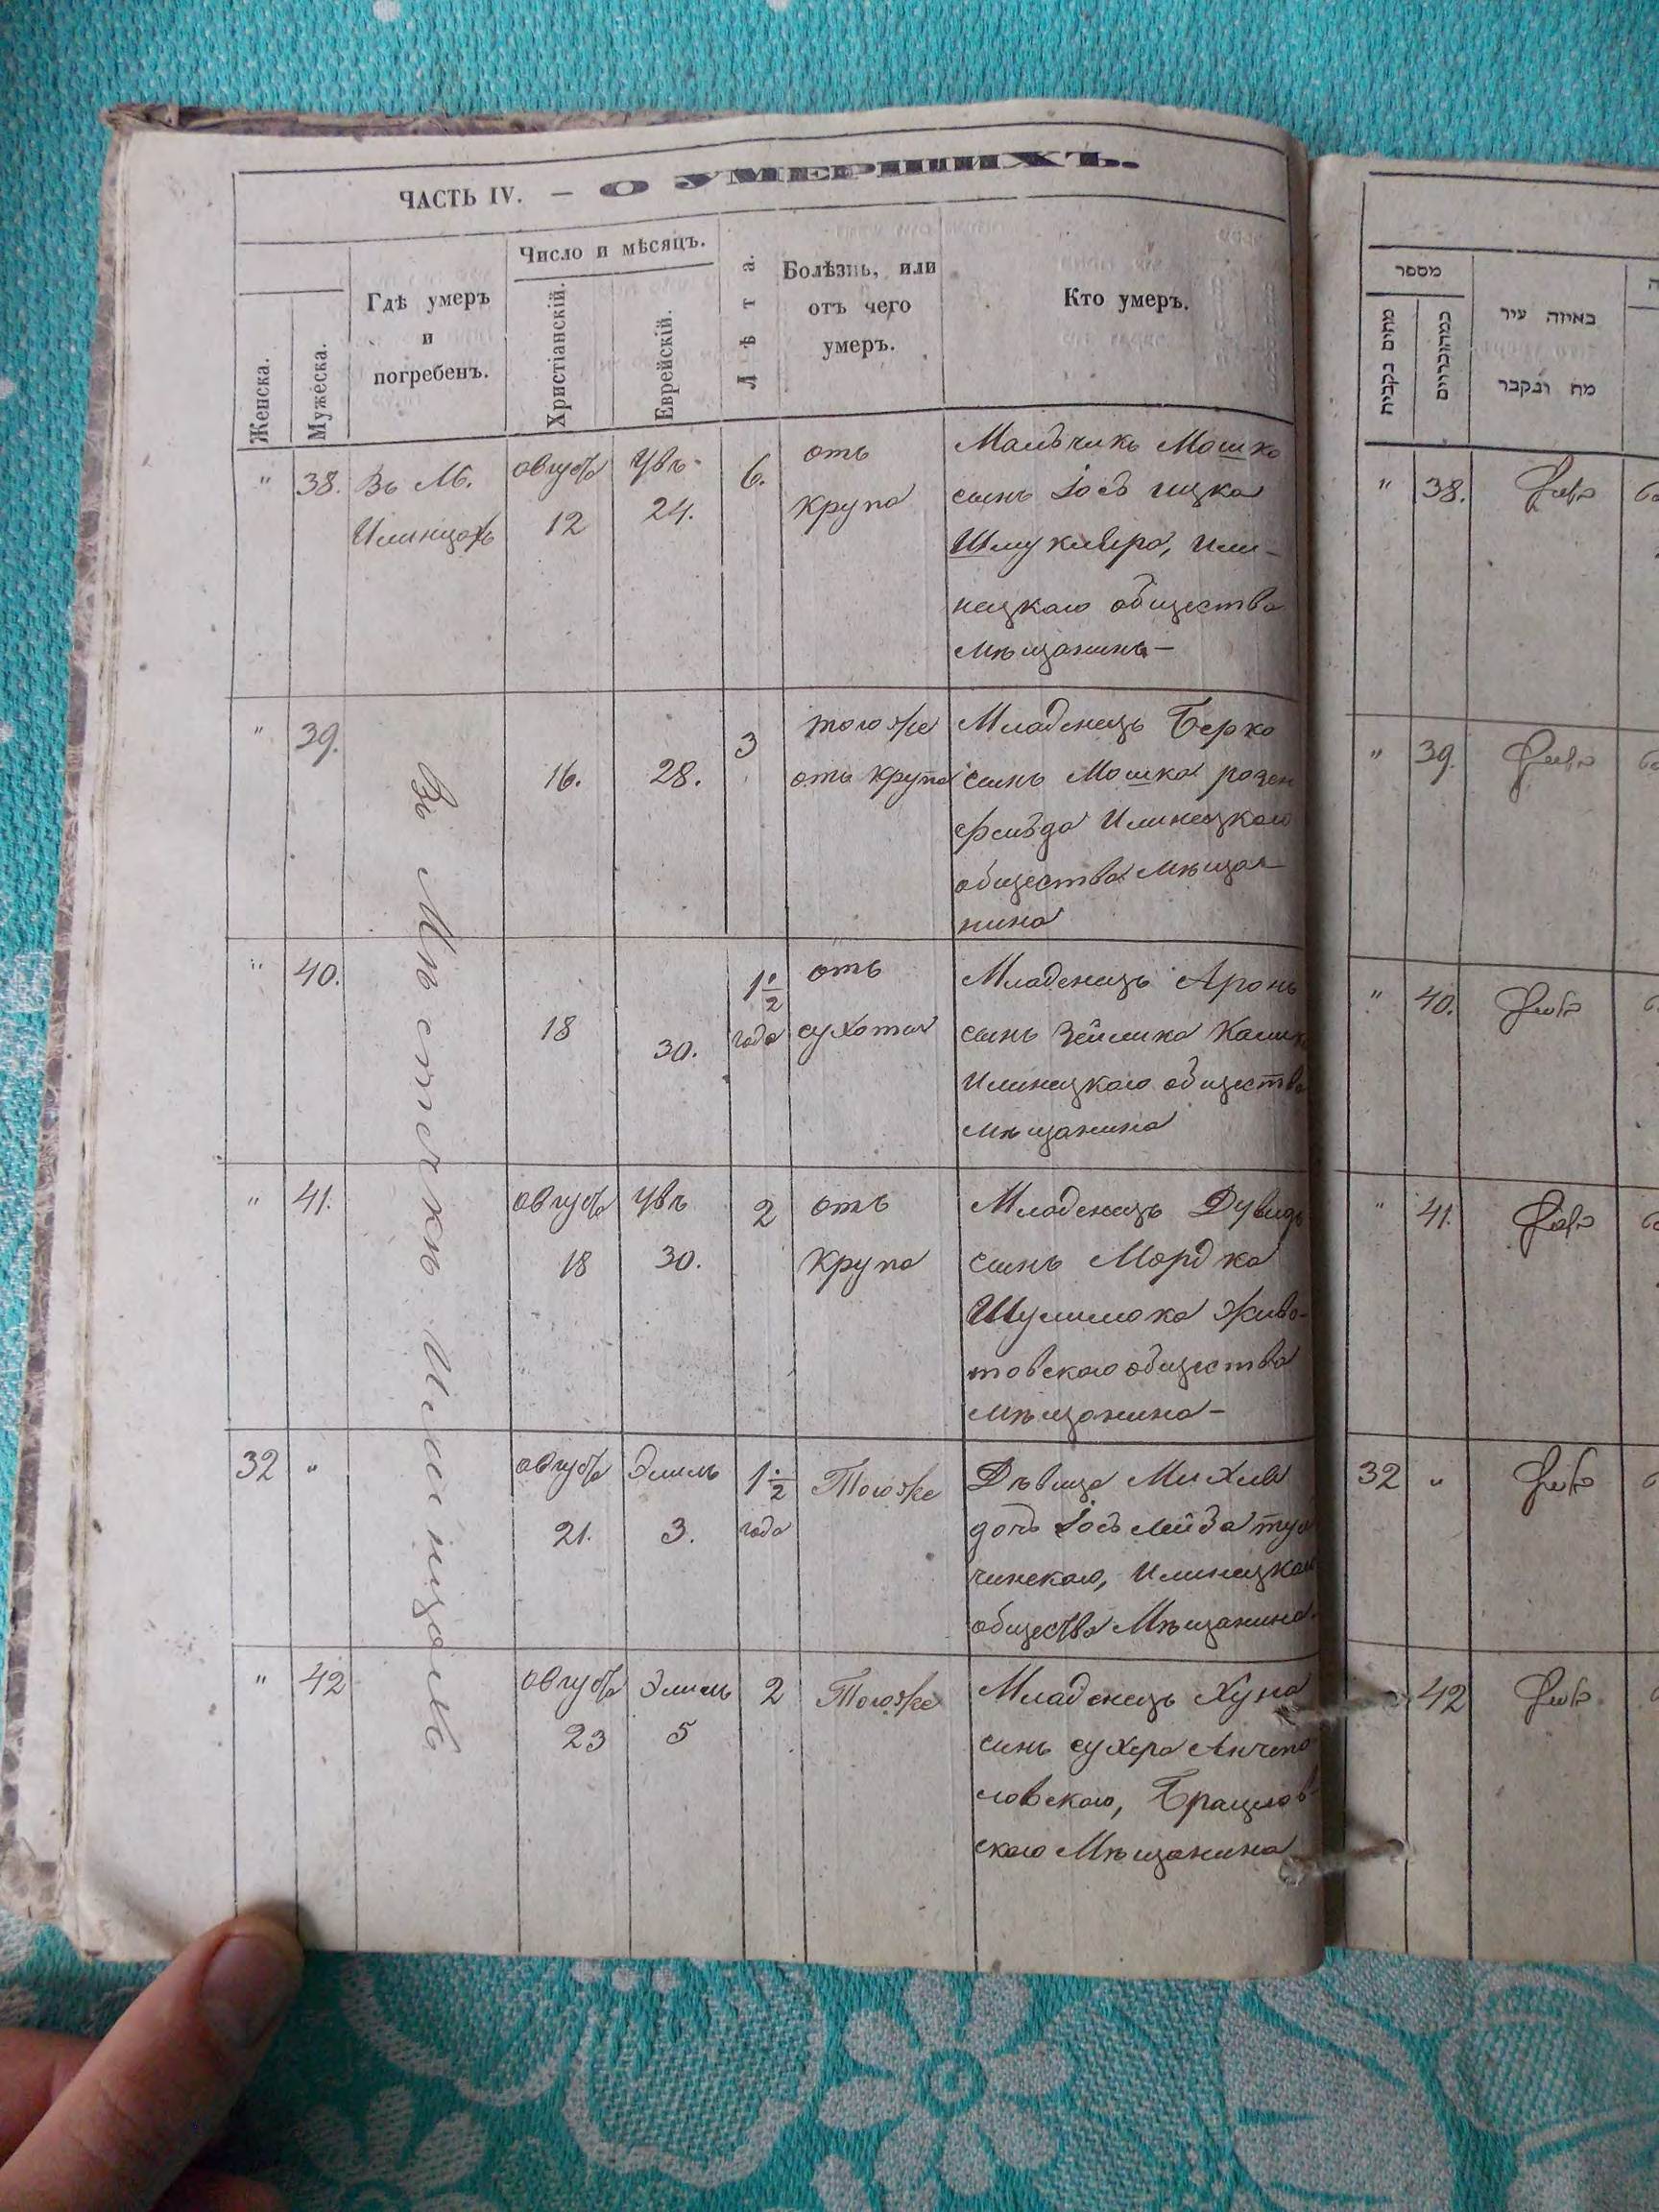 ЧАСТЬ IV. — О УМЕРШИХЪ.
Женска.
Мужеска.
Гдѣ умеръ
и
погребенъ.
Число и мѣсяцъ.
Христіанскій.
Еврейскій.
Лѣта.
Болѣзнь, или
отъ чего
умеръ.
Кто умеръ.
" 38. Въ М.
Илинцахъ
август
12
24.
6.
отъ
крупа
Мальчикъ Мошко
сынъ Іось ицка
Шмуклера, Или-
нецкаго общества
мѣщанинъ—
" 39.
16.
28.
3
тогоже
отъ крупа
Младенецъ Берко
сынъ Мошка розен
фельда Илинецкаго
общества мѣща-
нина
" 40.
18
30.
1 1/2
года
отъ
сухотки
Младенецъ Аронъ
сынъ Зейлика
Илинецкаго общества
мѣщанина
" 41.
август
18
30.
2
отъ
крупа
Младенецъ Дувидъ
сынъ Мордка
Живо-
товскаго общества
мѣщанина—
32 "
август
21.
Элиль
3.
1 1/2
года
Тогоже
Дѣвица Михля
дочь Іось Лейба туль
чинскаго, Илинецкаго
общества Мѣщанина
" 42
август
23
Элиль
5
2
Тогоже
Младенецъ Хуна
сынъ сухера Анчепо
ловскаго, Брацлов-
скаго Мѣщанина
Въ Мѣстечкѣ Илинцахъ
מספר
באיזה עיר
מת ונקבר
" 38.
" 39.
" 40.
" 41.
32 "
42